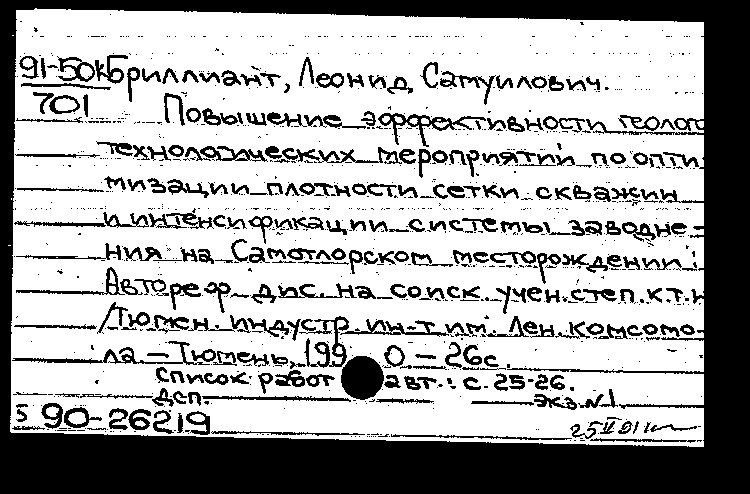 91-50к Бриллиант, Леонид Самуилович.
701 Повышение эффективности геолого
технологических мероприятий по опти-
мизации плотности сетки скважин
и интенсификации системы заводне-
ния на Самотлорском месторождении:
Автореф. дис. на соиск. учен. степ. к.т.н
/Тюмен. индустр. ин-т им. Лен. комсомо-
ла. — Тюмень, 1990 — 26 с.
Список работ авт.: с. 25-26.
ДСП. Экз. N 1.
5 90-26219
25 II 91